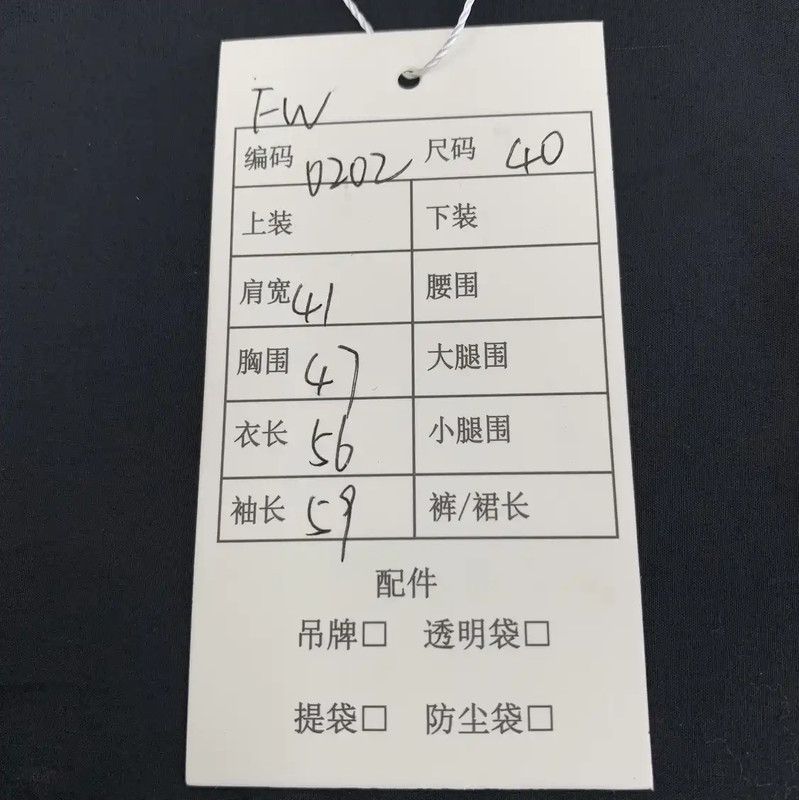 FW
编码 0202 尺码 40
上装 下装
肩宽 41 腰围
胸围 47 大腿围
衣长 56 小腿围
袖长 59 裤/裙长
配件
吊牌□ 透明袋□
提袋□ 防尘袋□